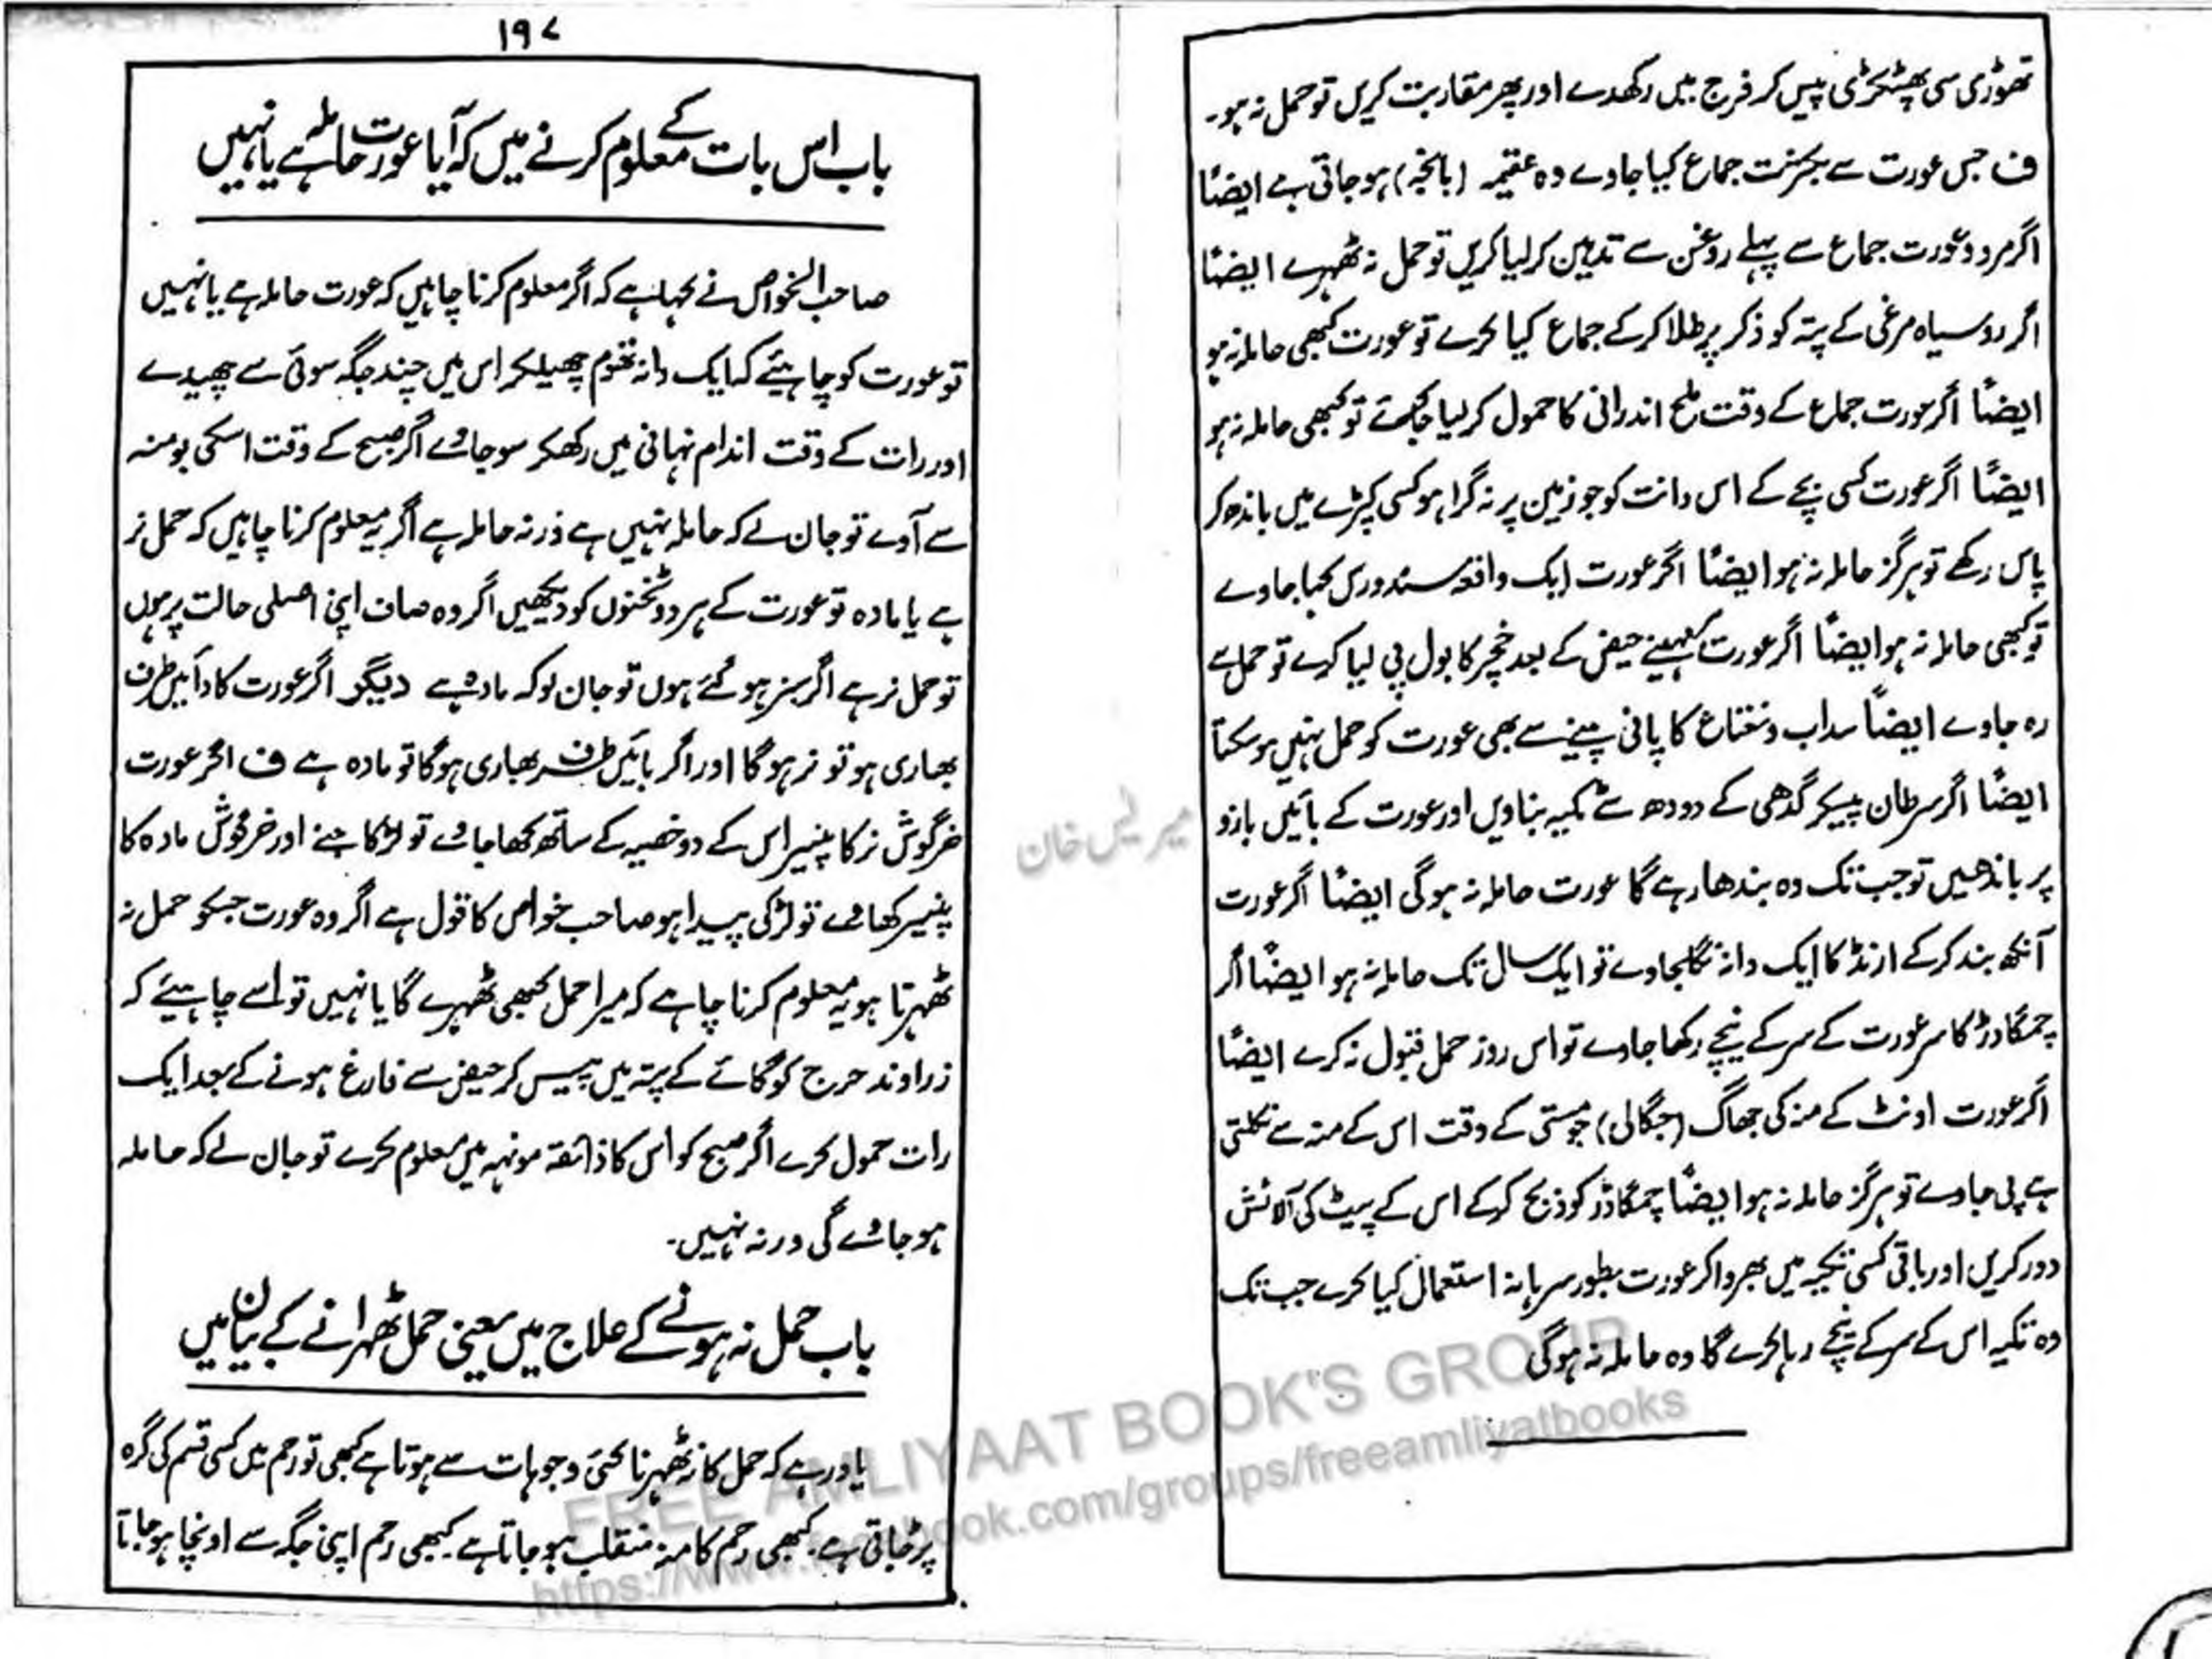 تھوڑی سی پھٹکڑی پیس کر فرج میں رکھدے اور پھر مقاربت کریں تو حمل نہ ہو۔
ف جس عورت سے بکثرت جماع کیا جاوے وہ عقیمہ (بانجھ) ہو جاتی ہے ایضًا
اگر مرد و عورت جماع سے پہلے روغن سے تدہین کر لیا کریں تو حمل نہ ٹھہرے ایضًا
اگر مرد سیاہ مرغی کے پتہ کو ذکر پر طلا کر کے جماع کیا کرے تو عورت کبھی حاملہ نہ ہو
ایضًا اگر عورت جماع کے وقت ملح اندرانی کا حمول کر لیا جائے تو کبھی حاملہ نہ ہو
ایضًا اگر عورت کسی بچے کے اس دانت کو جو زمین پر نہ گرا ہو کسی کپڑے میں باندھ کر
پاس رکھے تو ہرگز حاملہ نہ ہو ایضًا اگر عورت ایک جاوے
تو کبھی حاملہ نہ ہو ایضًا اگر عورت حیض کے بعد خچر کا بول پی لیا کرے تو حمل سے
رہ جاوے ایضًا سداب و نعناع کا پانی پینے سے بھی عورت کو حمل نہیں ہو سکتا
ایضًا اگر سرطان پیسکر گدھی کے دودھ سے ٹکیہ بناویں اور عورت کے بائیں بازو
پر باندھیں تو جب تک وہ بندھا رہے گا عورت حاملہ نہ ہوگی ایضًا اگر عورت
آنکھ بند کر کے ارنڈ کا ایک دانہ نگلجاوے تو ایک سال تک حاملہ نہ ہو ایضًا اگر
چمگادڑ کا سر عورت کے سر کے نیچے رکھا جاوے تو اس روز حمل قبول نہ کرے ایضًا
اگر عورت اونٹ کے منہ کی جھاگ (جگالی) جو مستی کے وقت اس کے منہ سے نکلتی
ہے پی جاوے تو ہرگز حاملہ نہ ہو ایضًا چمگادڑ کو ذبح کر کے اس کے پیٹ کی آلائش
دور کریں اور باقی کسی تکیہ میں بھروا کر عورت بطور سرہانہ استعمال کیا کرے جب تک
وہ تکیہ اس کے سر کے نیچے رہا کرے گا وہ حاملہ نہ ہوگی
۱۹۷
باب اس بات کے معلوم کرنے میں کہ آیا عورت حاملہ ہے یا نہیں
صاحب الخواص نے کہا ہے کہ اگر معلوم کرنا چاہیں کہ عورت حاملہ ہے یا نہیں
تو عورت کو چاہیئے کہ ایک دانہ تھوم چھیلکر اس میں چند جگہ سوئی سے چھیدے
اور رات کے وقت اندام نہانی میں رکھکر سو جائے اگر صبح کے وقت اسکی بو منہ
سے آوے تو جان لے کہ حاملہ نہیں ہے ورنہ حاملہ ہے اگر یہ معلوم کرنا چاہیں کہ حمل نر
ہے یا مادہ تو عورت کے ہر دو ٹخنوں کو دیکھیں اگر وہ صاف اپنی اصلی حالت پر ہوں
تو حمل نر ہے اگر سبز ہو گئے ہوں تو جان لو کہ مادہ ہے دیگر اگر عورت کا دائیں طرف
بھاری ہو تو نر ہوگا اور اگر بائیں طرف بھاری ہوگا تو مادہ ہے ف اگر عورت
خرگوش نر کا پنیر اس کے دو خصیہ کے ساتھ کھا جائے تو لڑکا جنے اور خرگوش مادہ کا
پنیر کھائے تو لڑکی پیدا ہو صاحب خواص کا قول ہے اگر وہ عورت جسکو حمل نہ
ٹھہرتا ہو یہ معلوم کرنا چاہے کہ میرا حمل کبھی ٹھہرے گا یا نہیں تو اسے چاہیئے کہ
زراوند حرج کو گائے کے پتہ میں پیس کر حیض سے فارغ ہونے کے بعد ایک
رات حمول کرے اگر صبح کو اس کا ذائقہ مونہہ میں معلوم کرے تو جان لے کہ حاملہ
ہو جائے گی ورنہ نہیں۔
باب حمل نہ ہونے کے علاج میں یعنی حمل ٹھہرانے کے بیان میں
یاد رہے کہ حمل کا نہ ٹھہرنا کئی وجوہات سے ہوتا ہے کبھی تو رحم میں کسی قسم کی گرہ
پڑ جاتی ہے۔ کبھی رحم کا منہ منقلب ہو جاتا ہے کبھی رحم اپنی جگہ سے اونچا ہو جاتا
FREE AMLIYAAT BOOK'S GROUP
https://www.facebook.com/groups/freeamliyatbooks